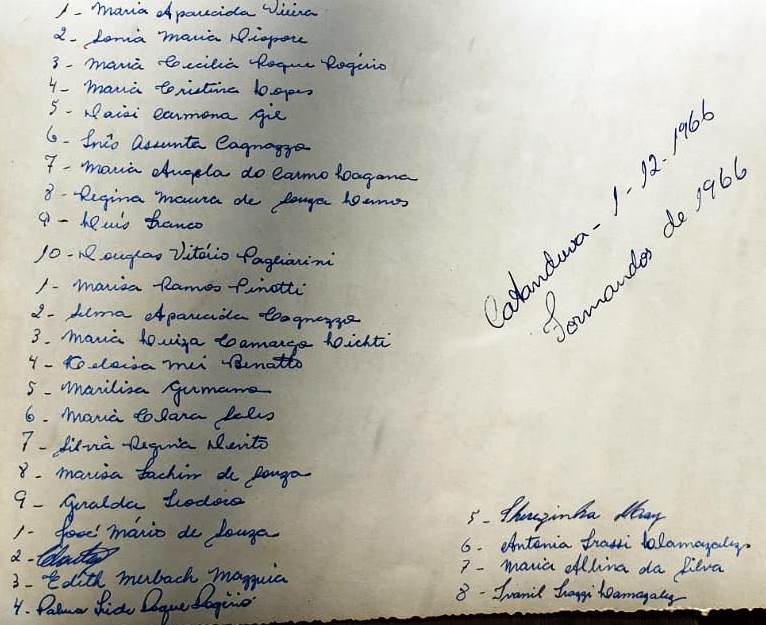 1 - Maria Aparecida Vieira
2 - Sonia Maria
3 - Maria Cecilia Roque Rogério
4 - Maria Cristina Lopes
5 - Daisi Carmona Gil
6 - Inês Assunta Cagnazzo
7 - Maria Angela do Carmo
8 - Regina Maura de Souza Lemos
9 - Franco
10 - Douglas Vitório Pagliarini
1 - Marisa Ramos Pinotti
2 - Selma Aparecida Cagnazzo
3 - Maria Luiza Camargo
4 - Heloisa Mei Benatto
5 - Marilisa Germano
6 - Maria Clara Sales
7 - Silvia Regina
8 - Marisa de Souza
9 - Geralda Teodoro
1 - José Mário de Souza
2 -
3 - Edith Merbach Mazzuia
4 - Palma Roque Rogério
Catanduva - 1-12-1966
Formandos de 1966
5 - Therezinha
6 - Antonia
7 - Maria da Silva
8 - Ivanil